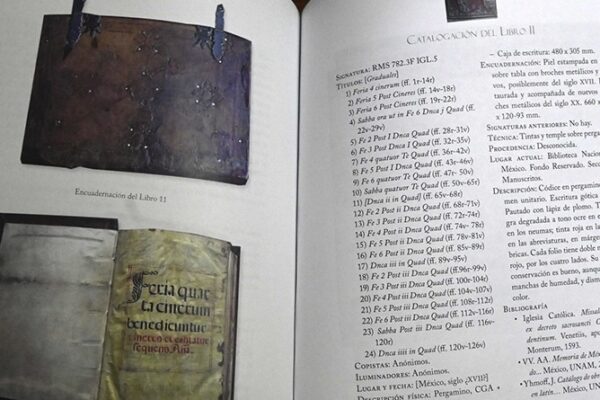 Encuadernación del Libro 11
Feria quar
ta cinerum
benedicuntur
cineres et cantatur
sequens Aña.
Catalogación del Libro II
Signatura: RMS 782.3F IGL.5
Títulos: [Graduale]
1) Feria 4 cinerum (ff. 1r-14r)
2) Feria 5 Post Cineres (ff. 14v-18r)
3) Feria 6 Post Cineres (ff. 19r-22r)
4) Sabba ora ut in Fe 6 Dnca j Quad (ff.
22v-29v)
5) Fe 2 Post I Dnca Quad (ff. 28r-31v)
6) Fe 3 Post I Dnca Quad (ff. 32r-35v)
7) Fe 4 quatuor Te Quad (ff. 36r-42v)
8) Fe 5 Post I Dnca Quad (ff. 43r-46v)
9) Fe 6 quatuor Te Quad (ff. 47r- 50v)
10) Sabba quatuor Te Quad (ff. 50v-65r)
11) [Dnca ii in Quad] (ff. 65v-68r)
12) Fe 2 Post ii Dnca Quad (ff. 68r-71v)
13) Fe 3 Post ii Dnca Quad (ff. 72r-74r)
14) Fe 4 Post ii Dnca Quad (ff. 74v- 78r)
15) Fe 5 Post ii Dnca Quad (ff. 78v-81v)
16) Fe 6 Post ii Dnca Quad (ff. 85v-89r)
17) Dnca iii in Quad (ff. 89v-95v)
18) Fe 2 Post iii Dnca Quad (ff.96r-99v)
19) Fe 3 Post iii Dnca Quad (ff. 100r-104r)
20) Fe 4 Post iii Dnca Quad (ff. 104v-107v)
21) Fe 5 Post iii Dnca Quad (ff. 108r-112r)
22) Fe 6 Post iii Dnca Quad (ff. 112v-116r)
23) Sabba Post iii Dnca Quad (ff. 116v-
120r)
24) Dnca iiii in Quad (ff. 120v-126v)
Copistas: Anónimos.
Iluminadores: Anónimos.
Lugar y fecha: [México, siglo ¿XVII?]
Descripción física: Pergamino, CGA
– Caja de escritura: 480 x 305 mm.
Encuadernación: Piel estampada en
sobre tabla con broches metálicos y
vos, posiblemente del siglo XVII.
taurada y acompañada de nuevos
ches metálicos del siglo XX. 660 x
x 120-93 mm.
Signaturas anteriores: No hay.
Técnica: Tintas y temple sobre perga
Procedencia: Desconocida.
Lugar actual: Biblioteca Nacional
México. Fondo Reservado. Sección
Manuscritos.
Descripción: Códice en pergamino
men unitario. Escritura gótica
Pautado con lápiz de plomo. T
gra degradada a tono ocre en
en los neumas; tinta roja en la
en las abreviaturas, en márge
bricas. Cada folio tiene doble m
rojo, por los cuatro lados. Su
conservación es bueno, aunque
manchas de humedad, y dism
color.
Bibliografía
• Iglesia Católica. Missale
ex decreto sacrosancti C
dentinum. Venetiis, apu
Monterum, 1593.
• VV. AA. Memoria de Méx
do... México, UNAM, 2
• Yhmoff, J. Catálogo de o
en latín... México, UNA